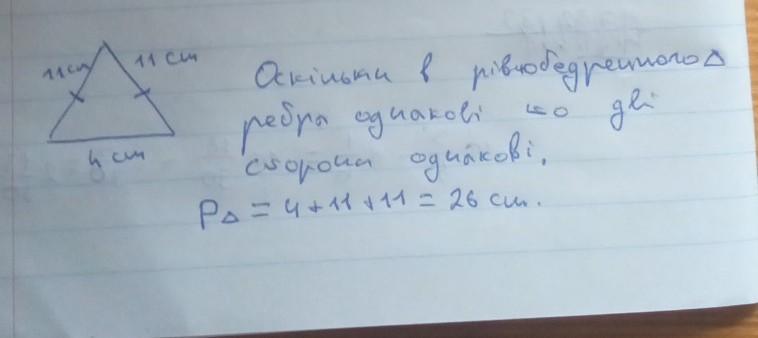 11 см 11 см
4 см
Оскільки в рівнобедренного Δ
ребра однакові то дві
сторони однакові.
PΔ = 4 + 11 + 11 = 26 см.